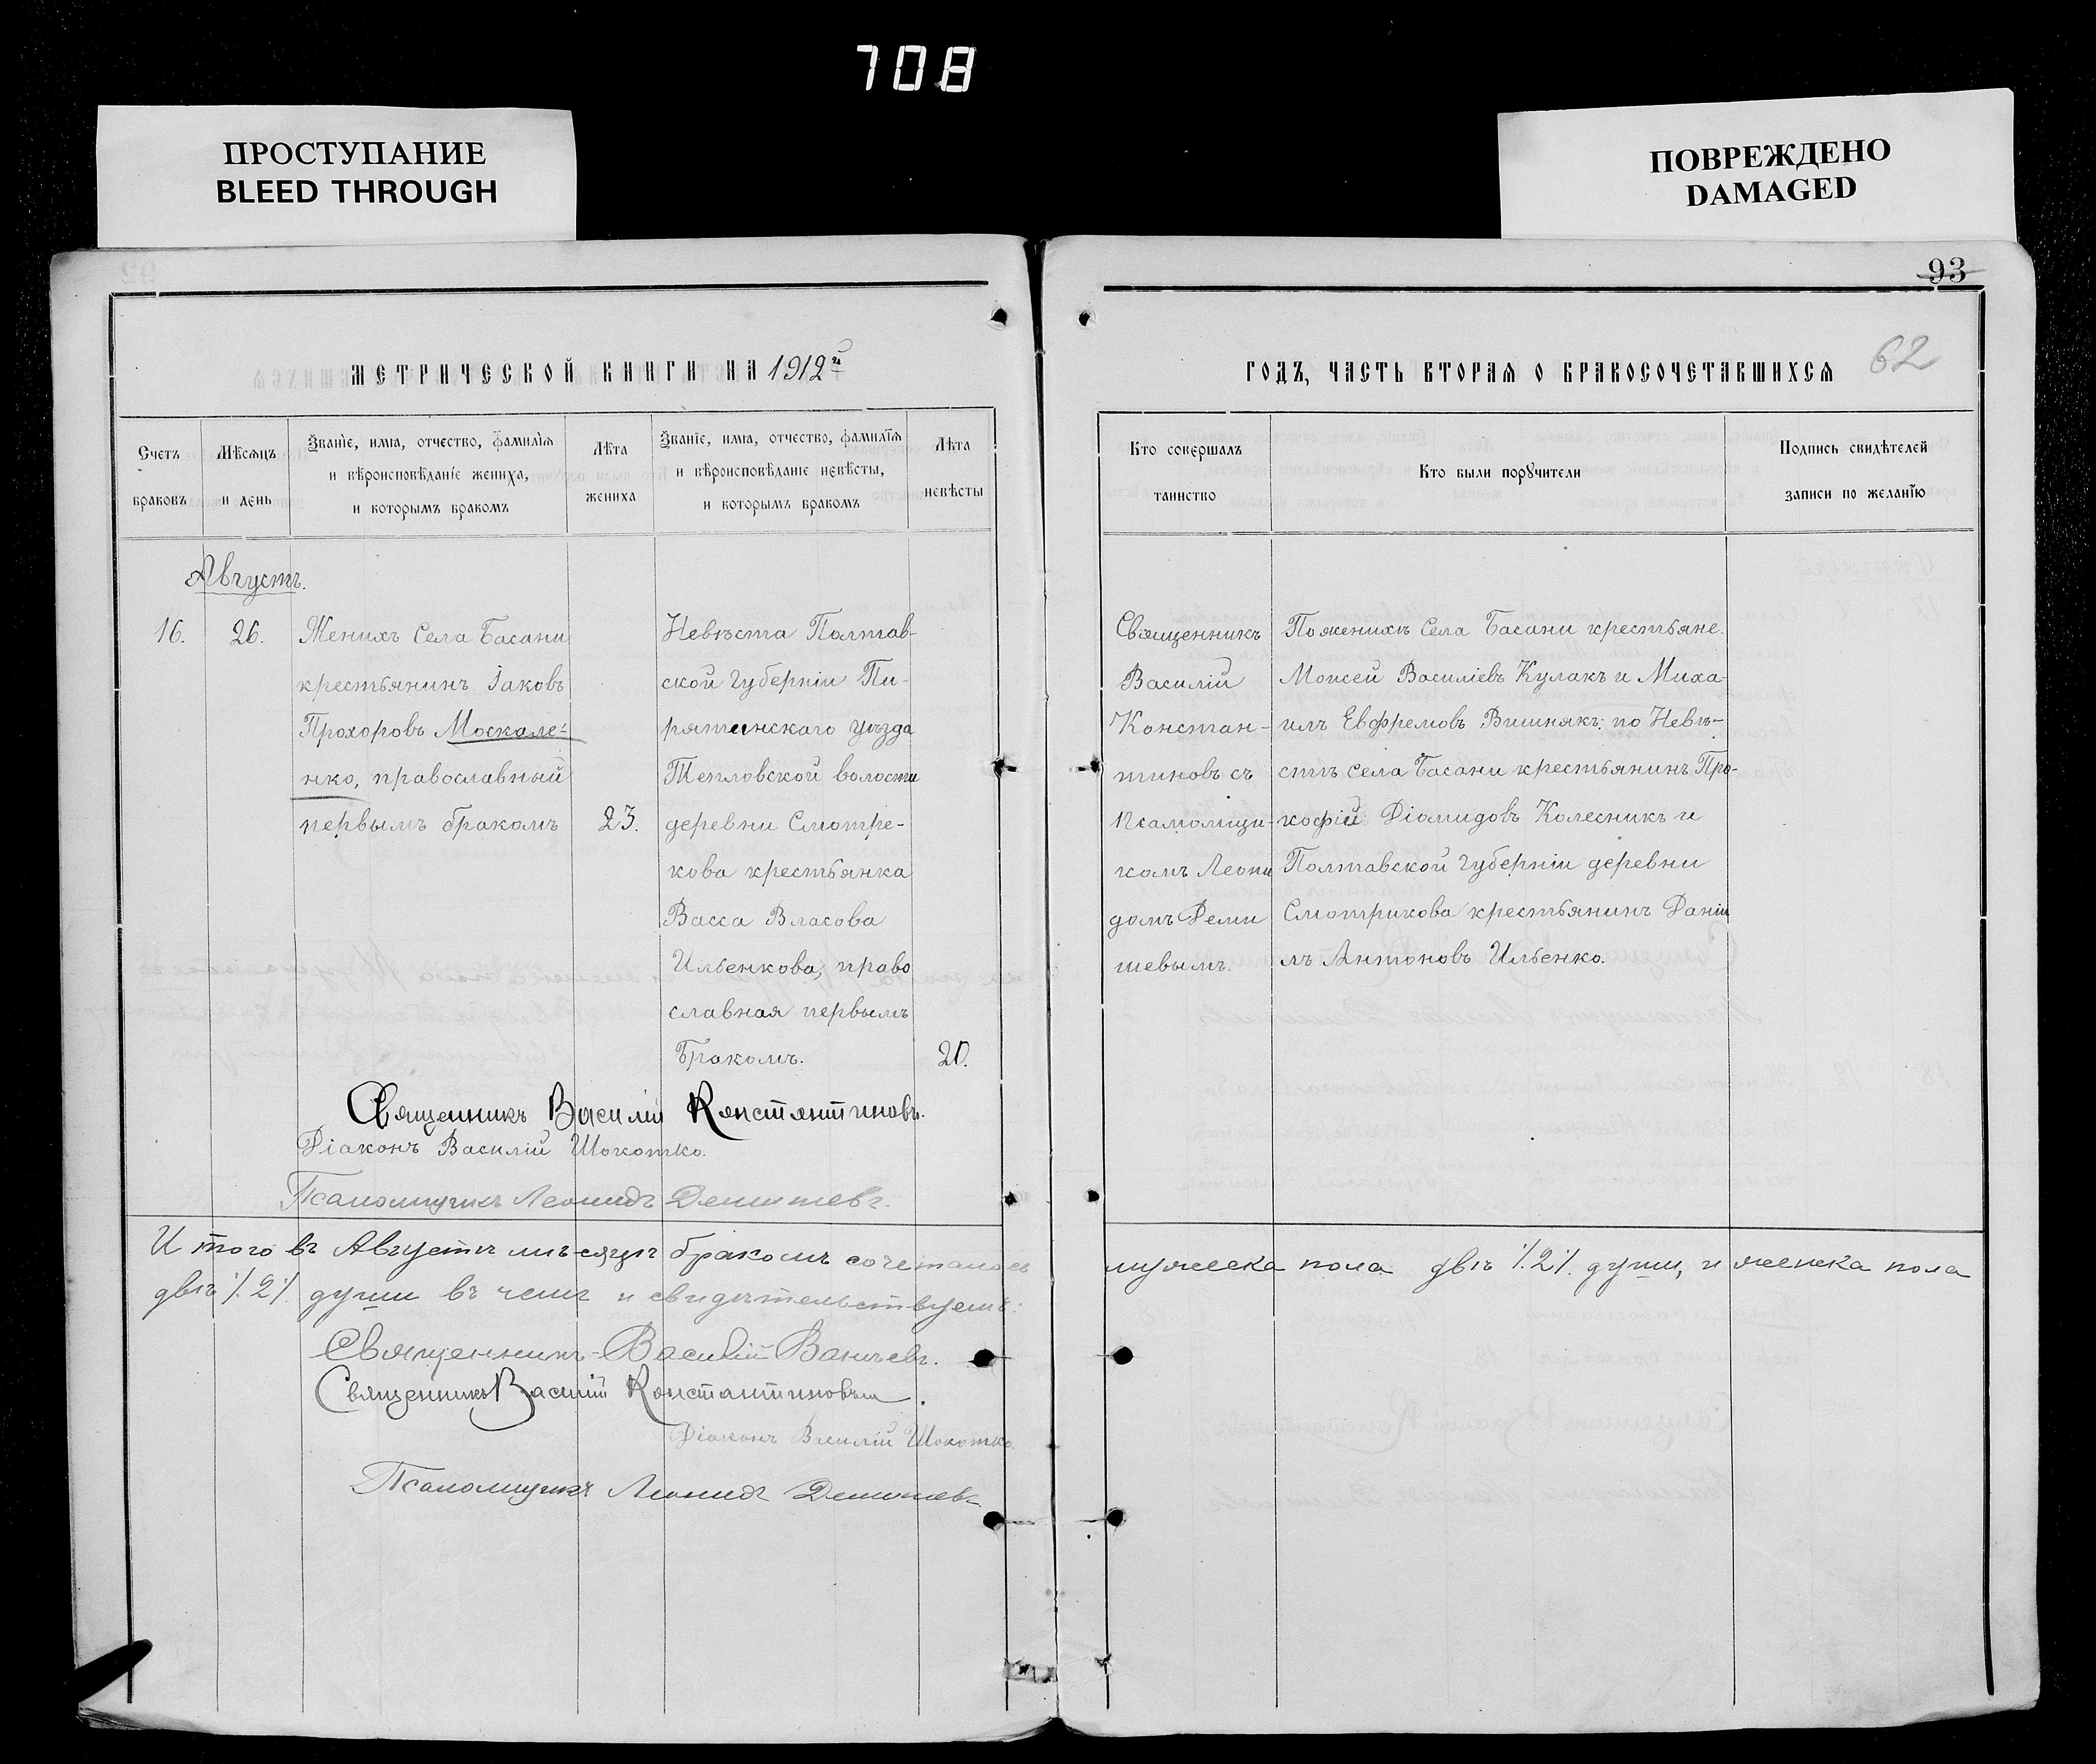 708
ПРОСТУПАНИЕ
BLEED THROUGH
ПОВРЕЖДЕНО
DAMAGED
93
62
МЕТРИЧЕСКОЙ КНИГИ НА 1912й
Счетъ
браковъ
Мѣсяцъ
и день
Званіе, имя, отчество, фамилія
и вѣроисповѣданіе жениха,
и которымъ бракомъ
Лѣта
жениха
Званіе, имя, отчество, фамилія
и вѣроисповѣданіе невѣсты,
и которымъ бракомъ
Лѣта
невѣсты
Августъ.
16.
26.
Женихъ Села Басани
крестьянинъ Іаковъ
Прохоровъ Москале-
нко, православный
первымъ бракомъ
23.
Невѣста Полтав-
ской губерніи Пи-
рятинскаго уѣзда
Тепловской волости
деревни Смотре-
кова крестьянка
Васса Власова
Ильенкова, право
славная первымъ
бракомъ.
20.
Священникъ Василій Константиновъ.
Діаконъ Василій Шокотко.
Псаломщикъ Леонидъ Демишевъ.
Итого въ Августѣ мѣсяцѣ бракомъ сочеталось
двѣ /.2/. души въ чемъ и свидѣтельствуемъ:
Священникъ Василій
Священникъ Василій Константиновъ.
Діаконъ Василій Шокотко.
Псаломщикъ Леонидъ Демишевъ
ГОДЪ, ЧАСТЬ ВТОРАЯ О БРАКОСОЧЕТАВШИХСЯ
Кто совершалъ
таинство
Кто были поручители
Подпись свидѣтелей
записи по желанію
Священникъ
Василій
Констан-
тиновъ съ
Псаломщи-
комъ Леони
домъ Деми
шевымъ.
По женихѣ Села Басани крестьяне.
Моисей Василіевъ Кулакъ и Миха-
илъ Евфремовъ Вишнякъ: по Невѣ-
стѣ села Басани крестьянинъ Про-
кофій Діомидовъ Колесникъ и
Полтавской губерніи деревни
Смотрикова крестьянинъ Даніи
лъ Антоновъ Ильенко.
мужеска пола двѣ /.2/. души, и женска пола